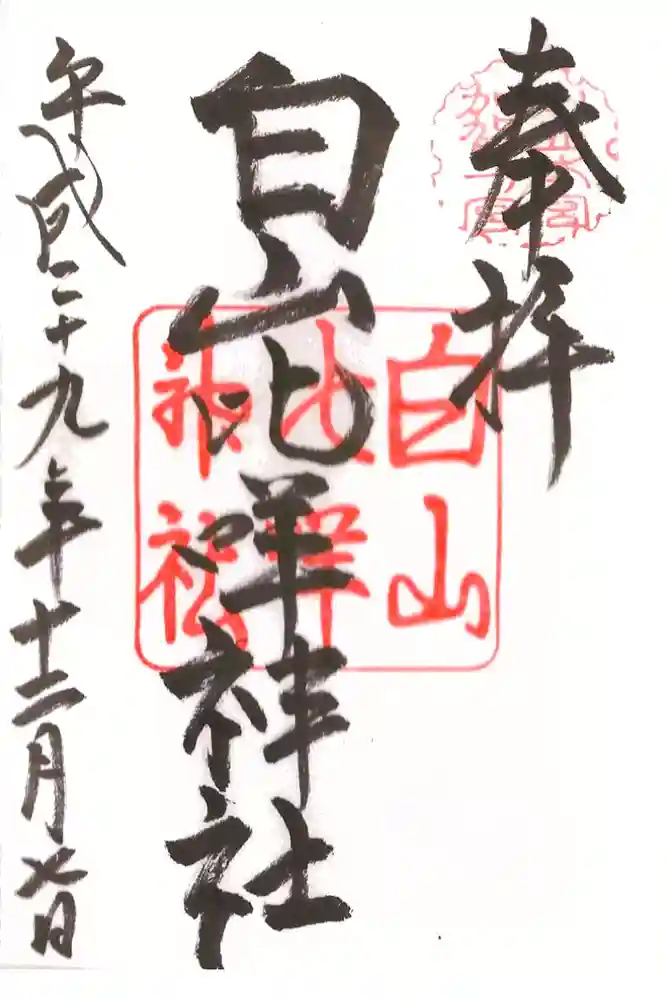 奉拝
白山比咩神社
平成二十九年十二月七日
白山
比咩
神社